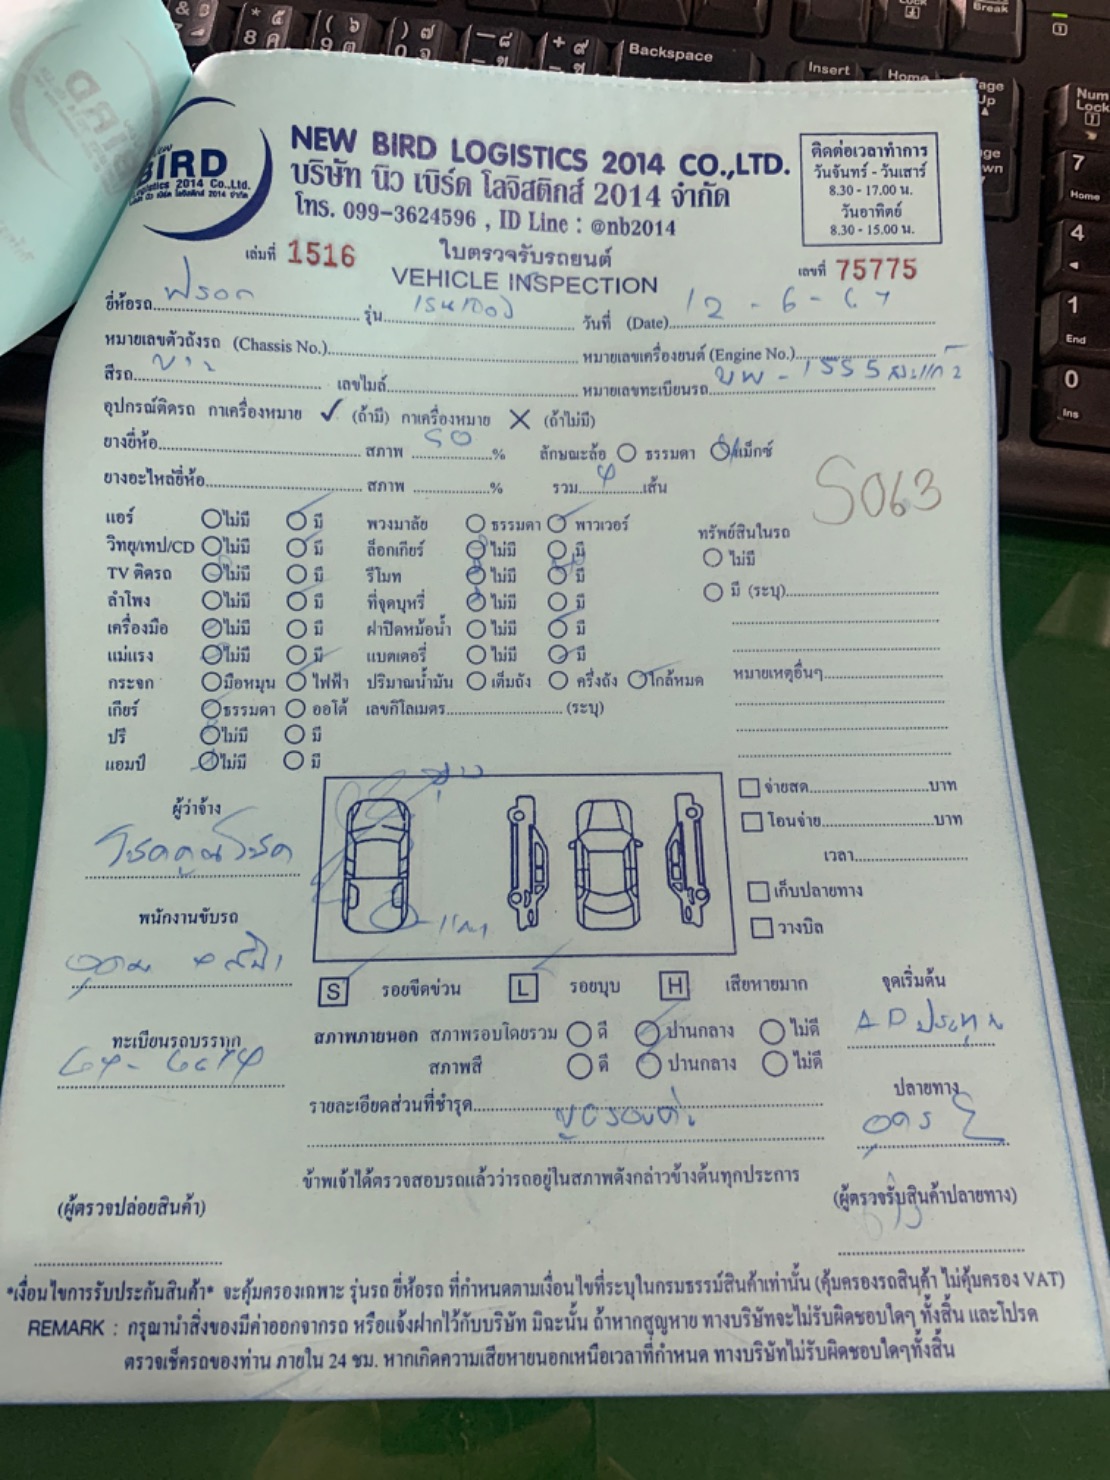 * ๕ 8 ค
( ๖ 9 ต
) ๗ 0 จ
Backspace
Insert
Home
Break
Num Lock
7 Home
4
1 End
0 Ins
BIRD
NEW BIRD LOGISTICS 2014 CO.,LTD.
บริษัท นิว เบิร์ด โลจิสติกส์ 2014 จำกัด
โทร. 099-3624596 , ID Line : @nb2014
ติดต่อเวลาทำการ
วันจันทร์ - วันเสาร์
8.30 - 17.00 น.
วันอาทิตย์
8.30 - 15.00 น.
เล่มที่ 1516
ใบตรวจรับรถยนต์
VEHICLE INSPECTION
เลขที่ 75775
ยี่ห้อรถ ฟรอด รุ่น เรนเจอร์ วันที่ (Date) 12 - 6 - 67
หมายเลขตัวถังรถ (Chassis No.) หมายเลขเครื่องยนต์ (Engine No.)
สีรถ เลขไมล์ หมายเลขทะเบียนรถ บพ - 1555 สระแก้ว
อุปกรณ์ติดรถ กาเครื่องหมาย ✓ (ถ้ามี) กาเครื่องหมาย X (ถ้าไม่มี)
ยางยี่ห้อ สภาพ 50 % ลักษณะล้อ ธรรมดา แม็กซ์
ยางอะไหล่ยี่ห้อ สภาพ % รวม 4 เส้น
5063
แอร์ ไม่มี มี พวงมาลัย ธรรมดา พาวเวอร์ ทรัพย์สินในรถ
วิทยุ/เทป/CD ไม่มี มี ล็อกเกียร์ ไม่มี มี ไม่มี
TV ติดรถ ไม่มี มี รีโมท ไม่มี มี มี (ระบุ)
ลำโพง ไม่มี มี ที่จุดบุหรี่ ไม่มี มี
เครื่องมือ ไม่มี มี ฝาปิดหม้อน้ำ ไม่มี มี
แม่แรง ไม่มี มี แบตเตอรี่ ไม่มี มี หมายเหตุอื่นๆ
กระจก มือหมุน ไฟฟ้า ปริมาณน้ำมัน เต็มถัง ครึ่งถัง ใกล้หมด
เกียร์ ธรรมดา ออโต้ เลขกิโลเมตร (ระบุ)
ปรี ไม่มี มี
แอมป์ ไม่มี มี
ผู้ว่าจ้าง
โชคคูณโชค
พนักงานขับรถ
ทะเบียนรถบรรทุก
จ่ายสด บาท
โอนจ่าย บาท
เวลา
เก็บปลายทาง
วางบิล
S รอยขีดข่วน L รอยบุบ H เสียหายมาก
จุดเริ่มต้น
AD ประทุม
สภาพภายนอก สภาพรอบโดยรวม ดี ปานกลาง ไม่ดี
สภาพสี ดี ปานกลาง ไม่ดี
ปลายทาง
อุดร
รายละเอียดส่วนที่ชำรุด
ข้าพเจ้าได้ตรวจสอบรถแล้วว่ารถอยู่ในสภาพดังกล่าวข้างต้นทุกประการ
(ผู้ตรวจปล่อยสินค้า)
(ผู้ตรวจรับสินค้าปลายทาง)
*เงื่อนไขการรับประกันสินค้า* จะคุ้มครองเฉพาะ รุ่นรถ ยี่ห้อรถ ที่กำหนดตามเงื่อนไขที่ระบุในกรมธรรม์สินค้าเท่านั้น (คุ้มครองรถสินค้า ไม่คุ้มครอง VAT)
REMARK : กรุณานำสิ่งของมีค่าออกจากรถ หรือแจ้งฝากไว้กับบริษัท มิฉะนั้น ถ้าหากสูญหาย ทางบริษัทจะไม่รับผิดชอบใดๆ ทั้งสิ้น และโปรด
ตรวจเช็ครถของท่าน ภายใน 24 ชม. หากเกิดความเสียหายนอกเหนือเวลาที่กำหนด ทางบริษัทไม่รับผิดชอบใดๆทั้งสิ้น